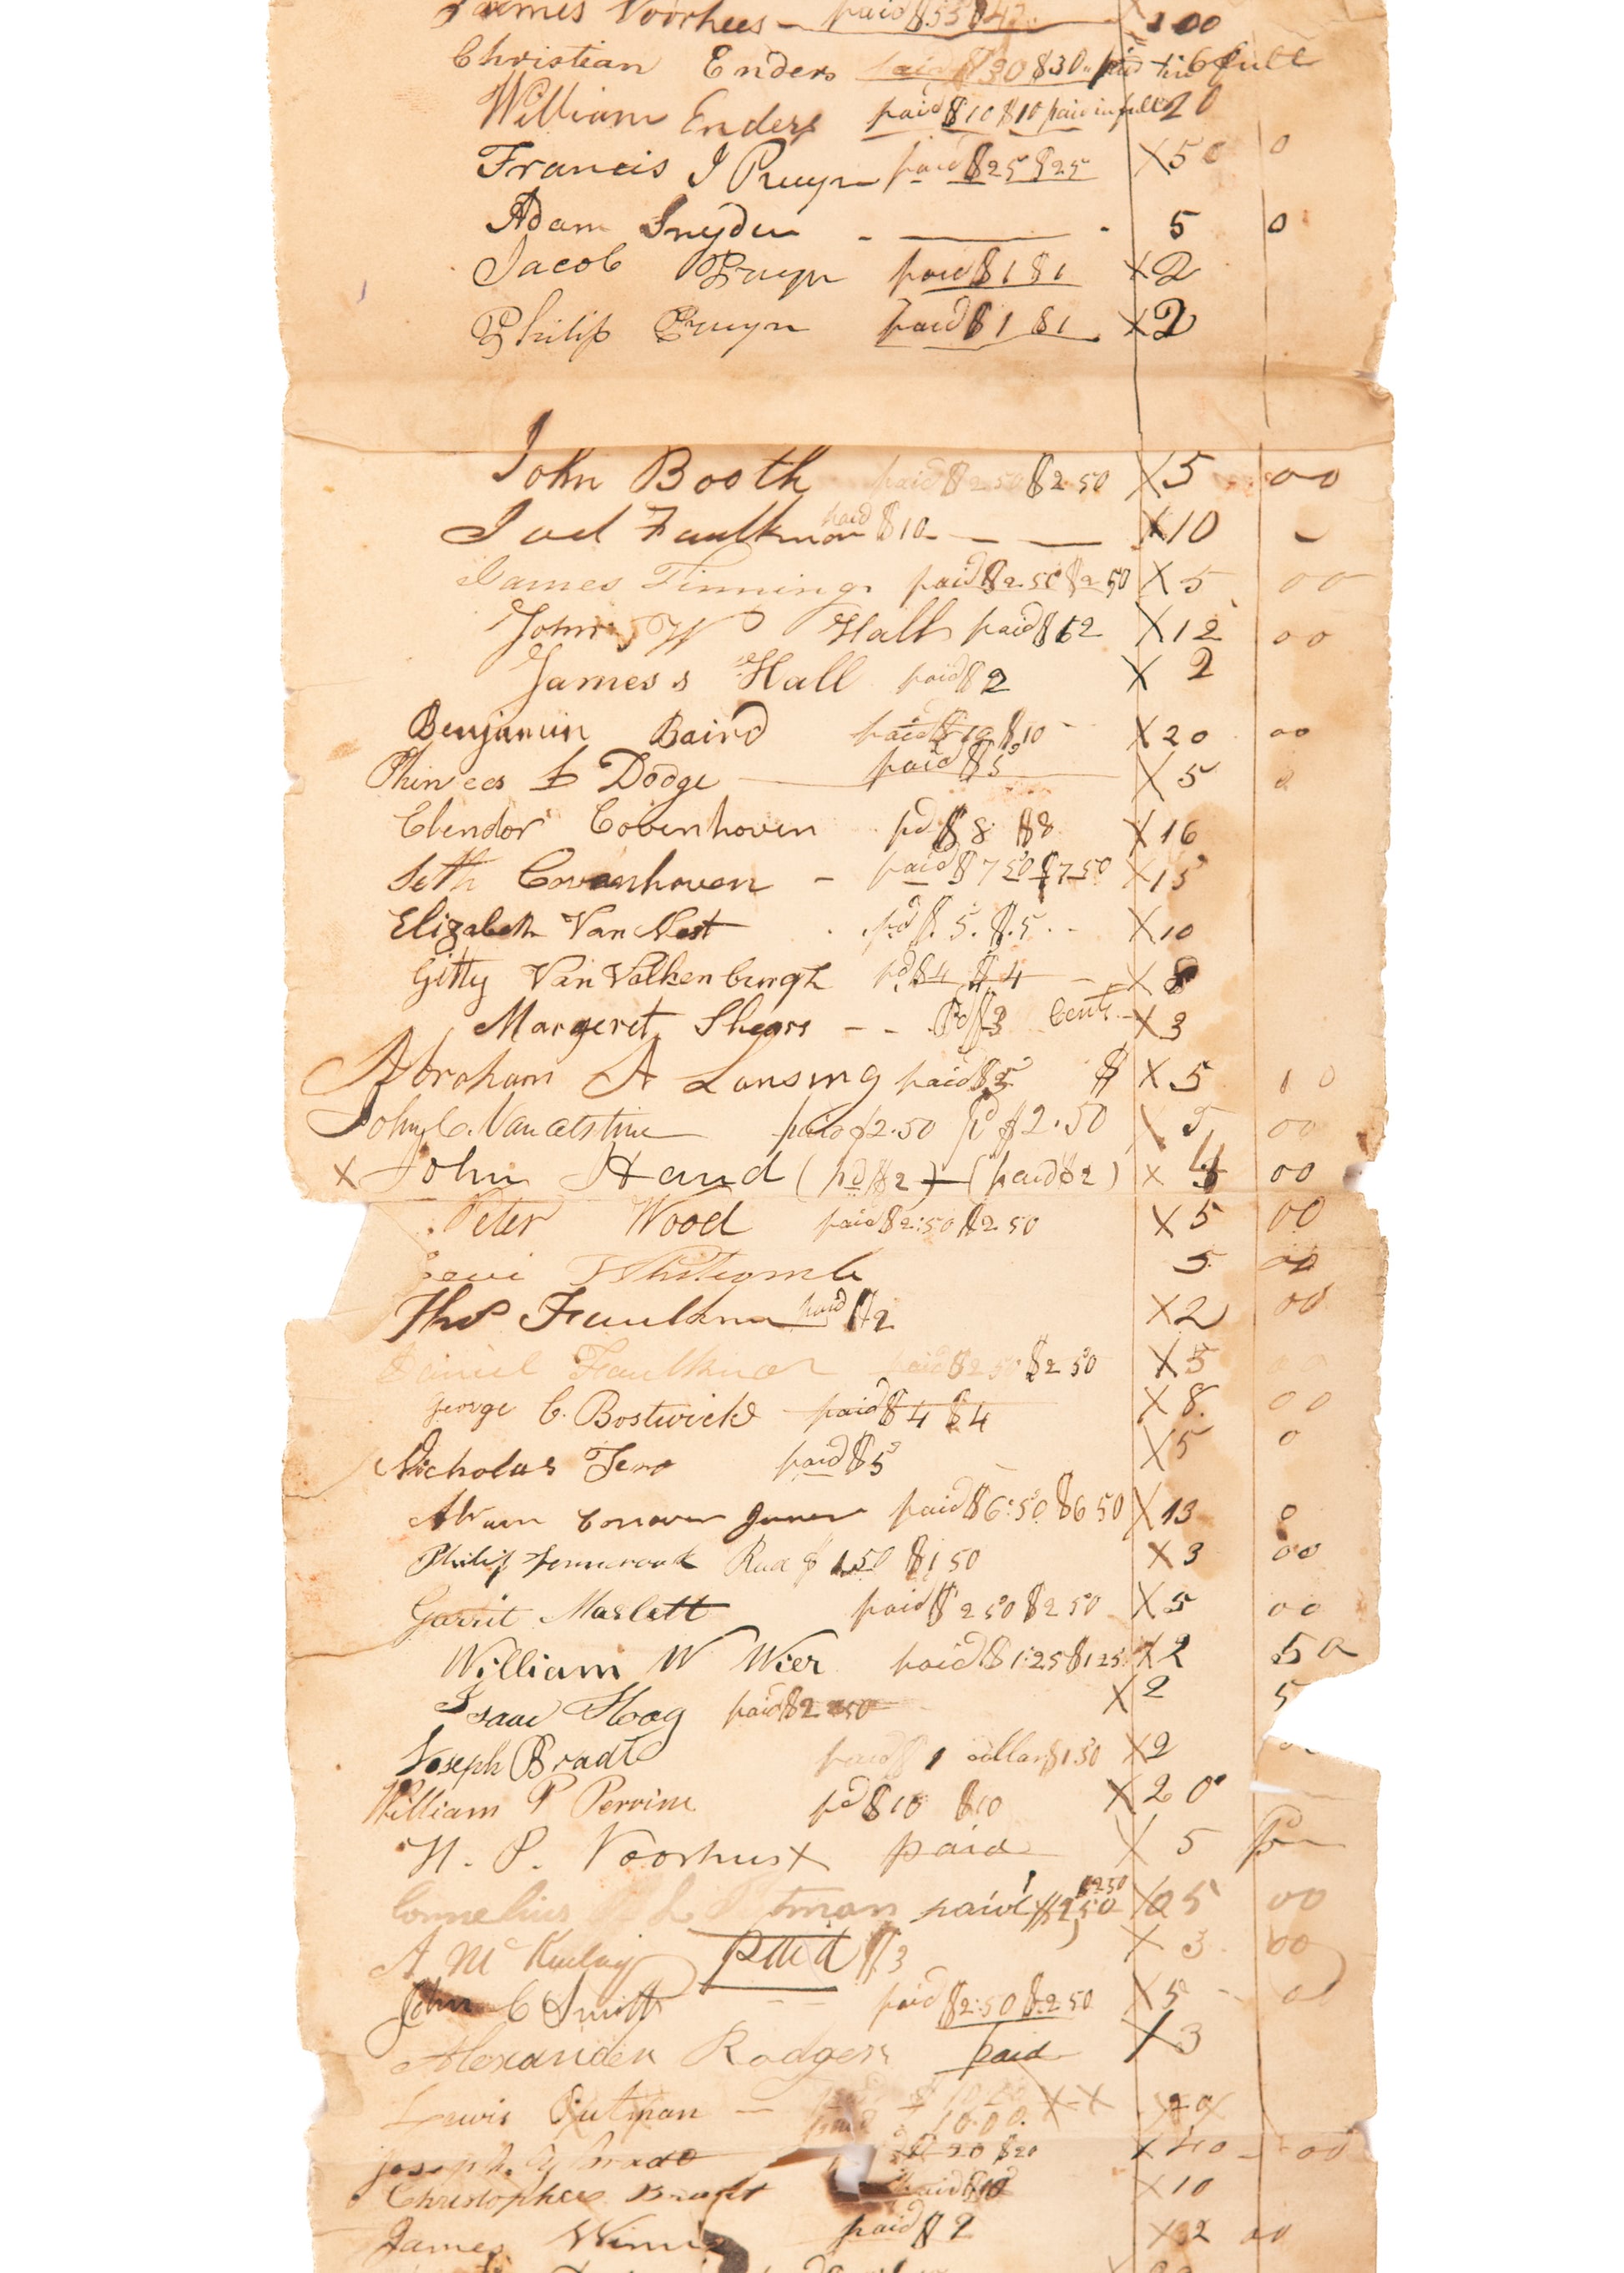 James Voorhees - paid $53 $47 X 100
Christian Enders paid $30 $30 paid in full 60
William Enders paid $10 $10 paid in full 20
Francis I Pruyn paid $25 $25 X 50 0
Adam Snyder - 5 0
Jacob Pruyn paid $1 $1 X 2
Philip Pruyn paid $1 $1 X 2
John Booth paid $2 50 $2 50 X 5 00
Joel Faulknor paid $10 - - X 10 -
James Finning paid $2.50 $2 50 X 5 00
John W Hall paid $12 X 12 00
James s Hall paid $2 X 2
Benjamin Baird paid $10 $10 - X 20 00
Phinees L Dodge paid $5 X 5 0
Elendor Covenhoven pd $8 $8 X 16
Seth Covenhoven - paid $7 50 $7 50 X 15
Elizabeth Van Nest pd $.5. $.5 X 10
Gitty Van Valkenburgh pd $4 $4 - X 8
Margeret Shears - - Pd $3 Cents X 3
Abraham A Lansing paid $5 $ X 5 00
John C. Vanalstine paid $2.50 pd $2.50 X 5 00
X John Hand (pd $2) - (paid $2) X 4 00
Peter Wood paid $2:50 $2 50 X 5 00
Levi Whitcomb 5 00
Thos Faulknor paid $2 X 2 00
Daniel Faulknor paid $2 50 $2 50 X 5 00
George C. Bostwick paid $4 $4 X 8 00
Nicholas Fero paid $5 X 5 0
Abram Conover Junor paid $6:50 $6 50 X 13 0
Philip $1.50 $1 50 X 3 00
Garrit Maslett paid $2 50 $2 50 X 5 00
William W Wier paid $1:25 $1 25 X 2 50
Isaac Hoag paid $2 50 X 2 5
Joseph Bradt paid $1 dollar $1 50 X 2
William P Perrine pd $10 $10 X 20
H. P. Voorhus X paid X 5
Cornelius L Putman paid $2,50 $2 50 X 5 00
A Mc Kinlay paid $3 X 3 00
John C Smith paid $2:50 $2 50 X 5 - 00
Alexander Rodgers paid X 3
Lewis Putman - paid $10.00 X X 20
paid 10.00
Joseph Bradt $20 $20 X 40 - 00
Christopher Bradt paid $10 X 10
James Winne paid $2 X 2 00